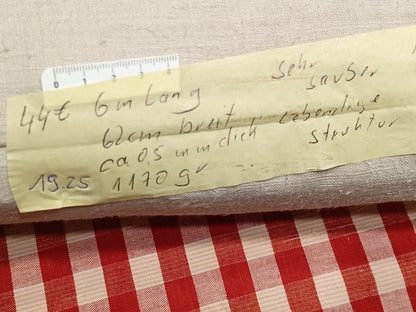 0 1 2 3 4
44€ 6m lang sehr sauber
62cm breit lebendige
ca 0,5 mm dick Struktur
19.25 1170 gr